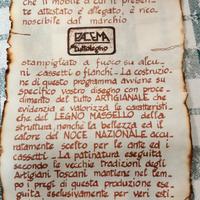 che il mobile a cui il presen-
te attestato è allegato, è rico-
noscibile dal marchio
tuttolegno
stampigliato a fuoco su alcu-
ni cassetti o fianchi - La costruzio-
ne di questo programma avviene su
specifico vostro disegno con proce-
dimento del tutto ARTIGIANALE che
evidenzia e valorizza le caratteristi-
che del LEGNO MASSELLO della
struttura, nonché la bellezza ed il
calore del NOCE NAZIONALE accu-
ratamente scelto per le ante ed i
cassetti - La patinatura eseguita
secondo le vecchie tradizioni degli
Artigiani Toscani mantiene nel tem-
po i pregi di questa produzione ese-
guita esclusivamente per veri esti-